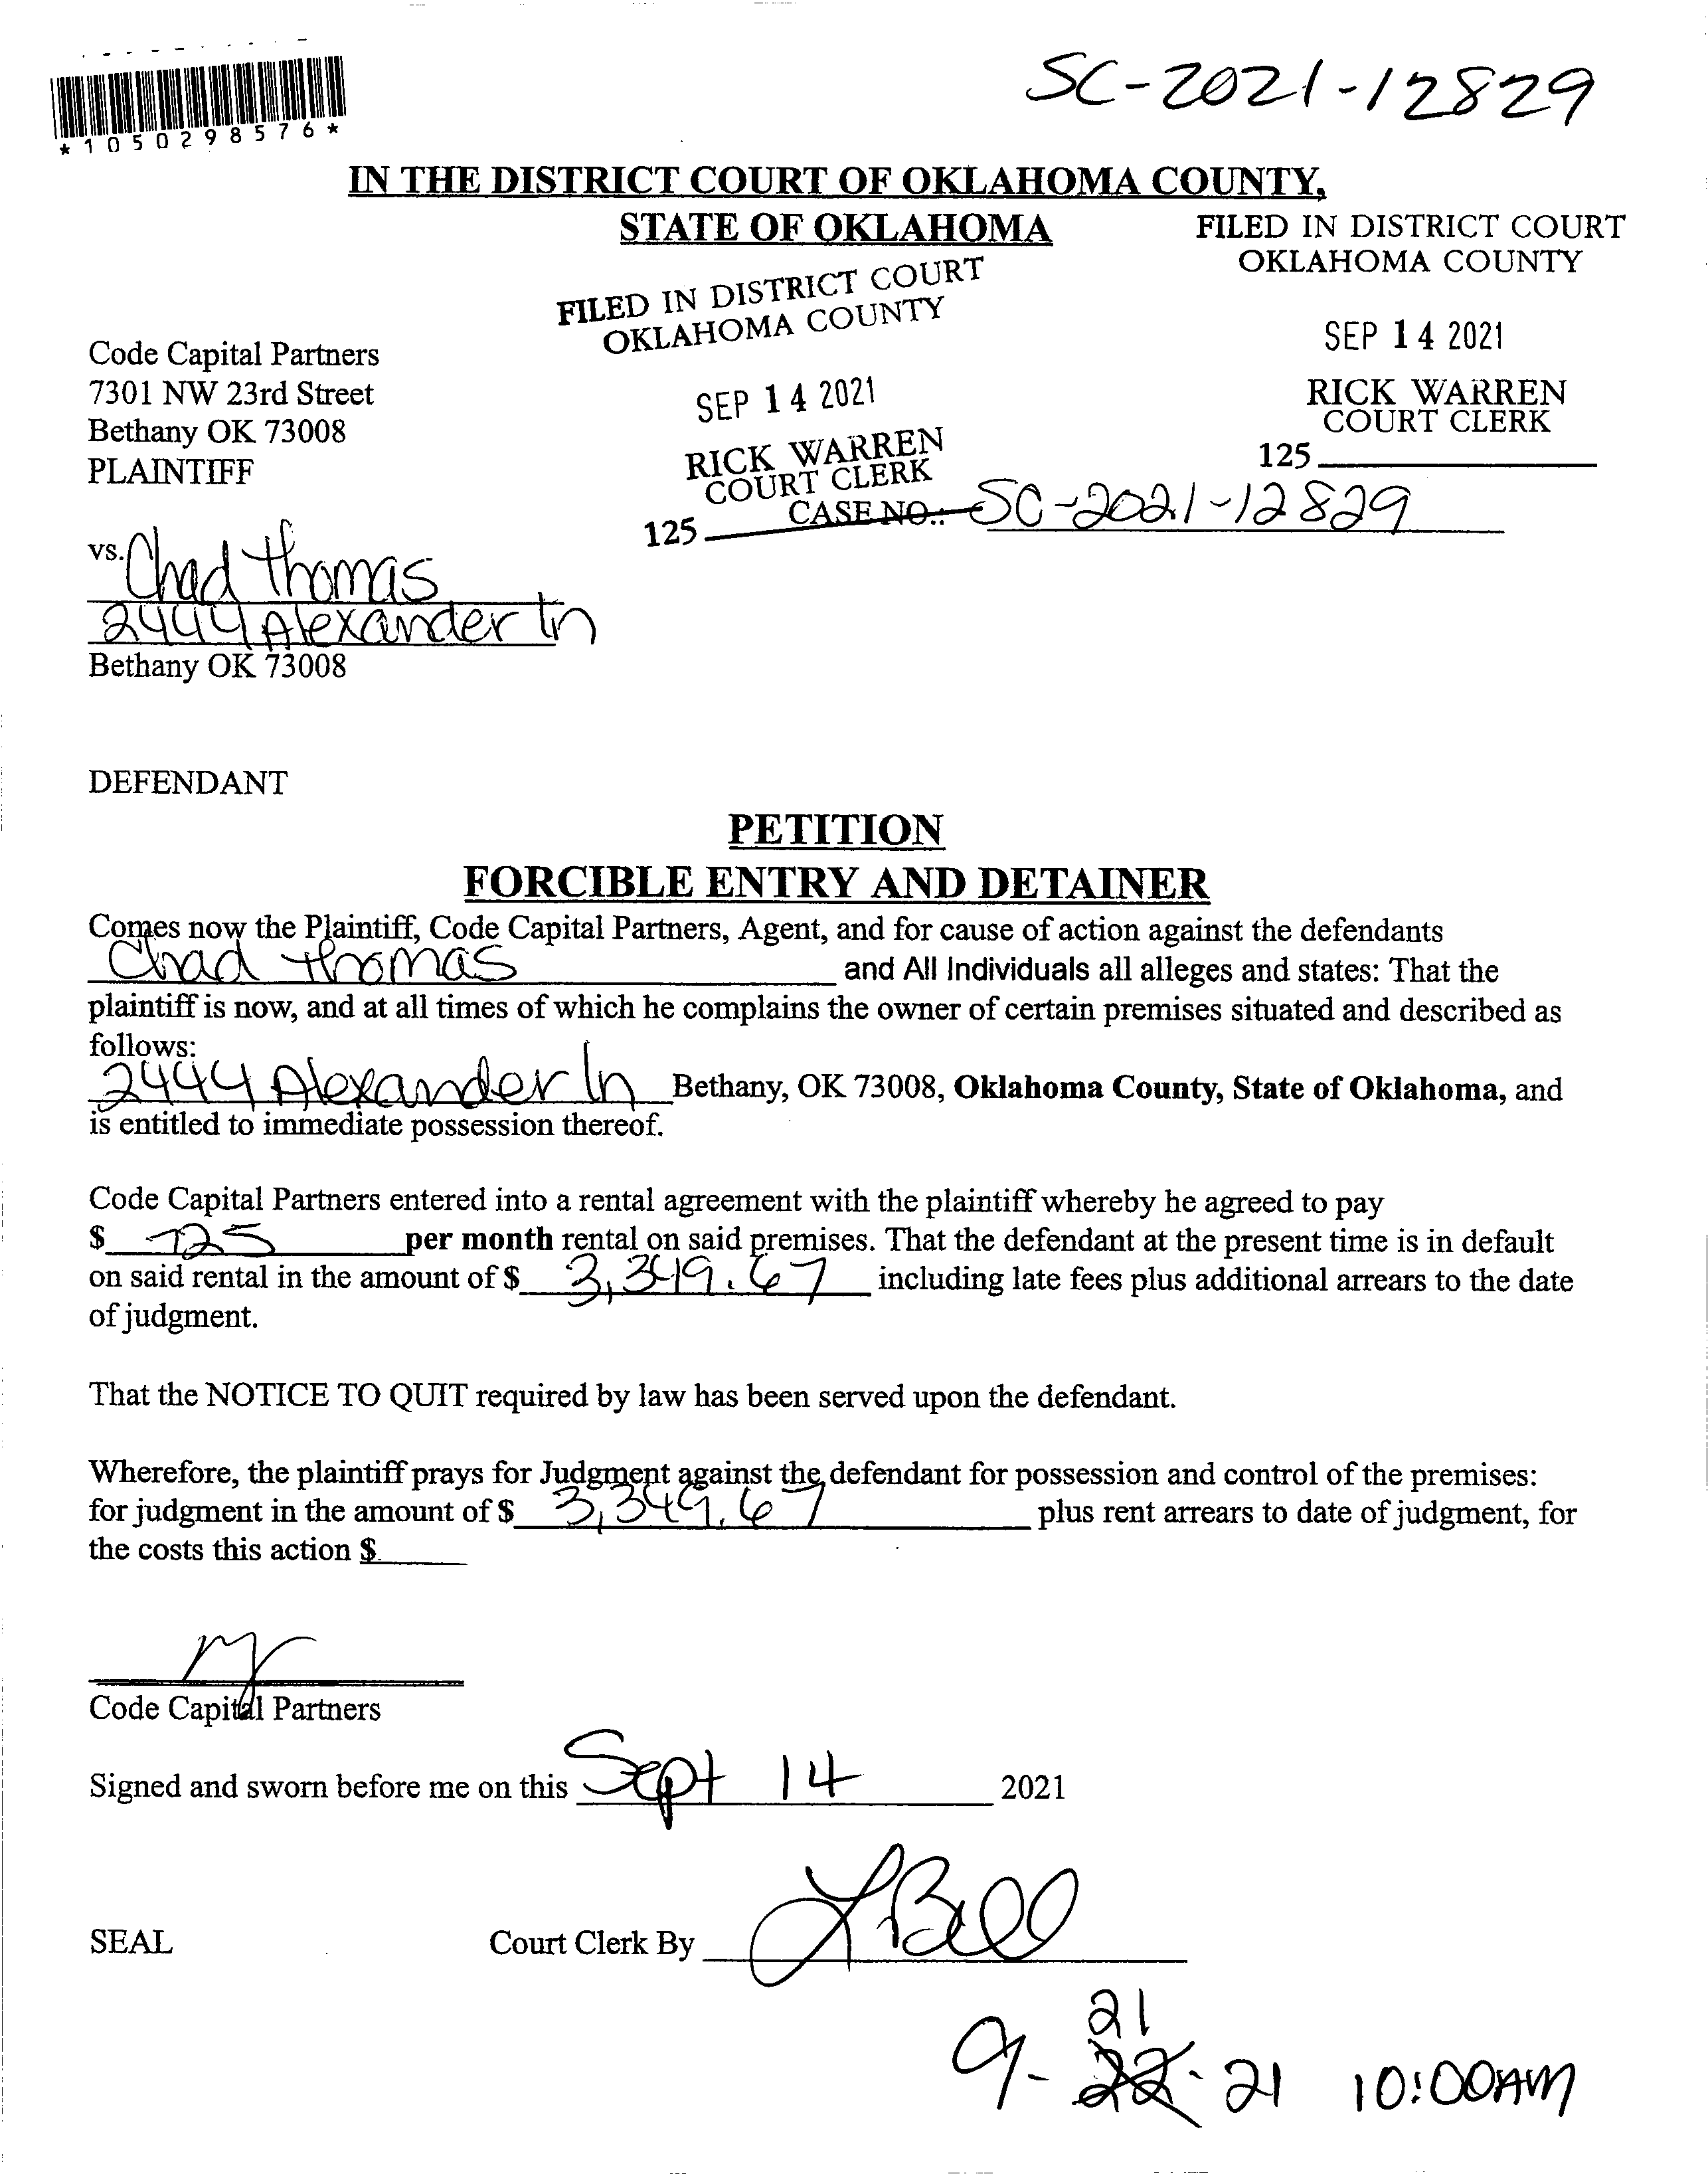 SC-2021-12829
*1050298576*
IN THE DISTRICT COURT OF OKLAHOMA COUNTY,
STATE OF OKLAHOMA
FILED IN DISTRICT COURT
OKLAHOMA COUNTY
SEP 14 2021
RICK WARREN
COURT CLERK
125
FILED IN DISTRICT COURT
OKLAHOMA COUNTY
SEP 14 2021
RICK WARREN
COURT CLERK
125
Code Capital Partners
7301 NW 23rd Street
Bethany OK 73008
PLAINTIFF
CASE NO.: SC-2021-12829
vs. Chad Thomas
2444 Alexander Ln
Bethany OK 73008
DEFENDANT
PETITION
FORCIBLE ENTRY AND DETAINER
Comes now the Plaintiff, Code Capital Partners, Agent, and for cause of action against the defendants
Chad Thomas and All Individuals all alleges and states: That the
plaintiff is now, and at all times of which he complains the owner of certain premises situated and described as
follows:
2444 Alexander Ln Bethany, OK 73008, Oklahoma County, State of Oklahoma, and
is entitled to immediate possession thereof.
Code Capital Partners entered into a rental agreement with the plaintiff whereby he agreed to pay
$ 725 per month rental on said premises. That the defendant at the present time is in default
on said rental in the amount of $ 3,349.67 including late fees plus additional arrears to the date
of judgment.
That the NOTICE TO QUIT required by law has been served upon the defendant.
Wherefore, the plaintiff prays for Judgment against the defendant for possession and control of the premises:
for judgment in the amount of $ 3,349.67 plus rent arrears to date of judgment, for
the costs this action $
Code Capital Partners
Signed and sworn before me on this Sept 14 2021
SEAL Court Clerk By L Bell
21
9-22-21 10:00AM